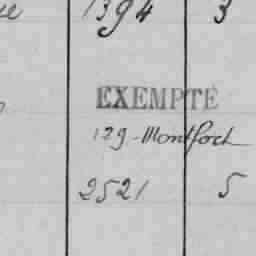 1394 3
EXEMPTÉ
129 - Montfort
2521 5